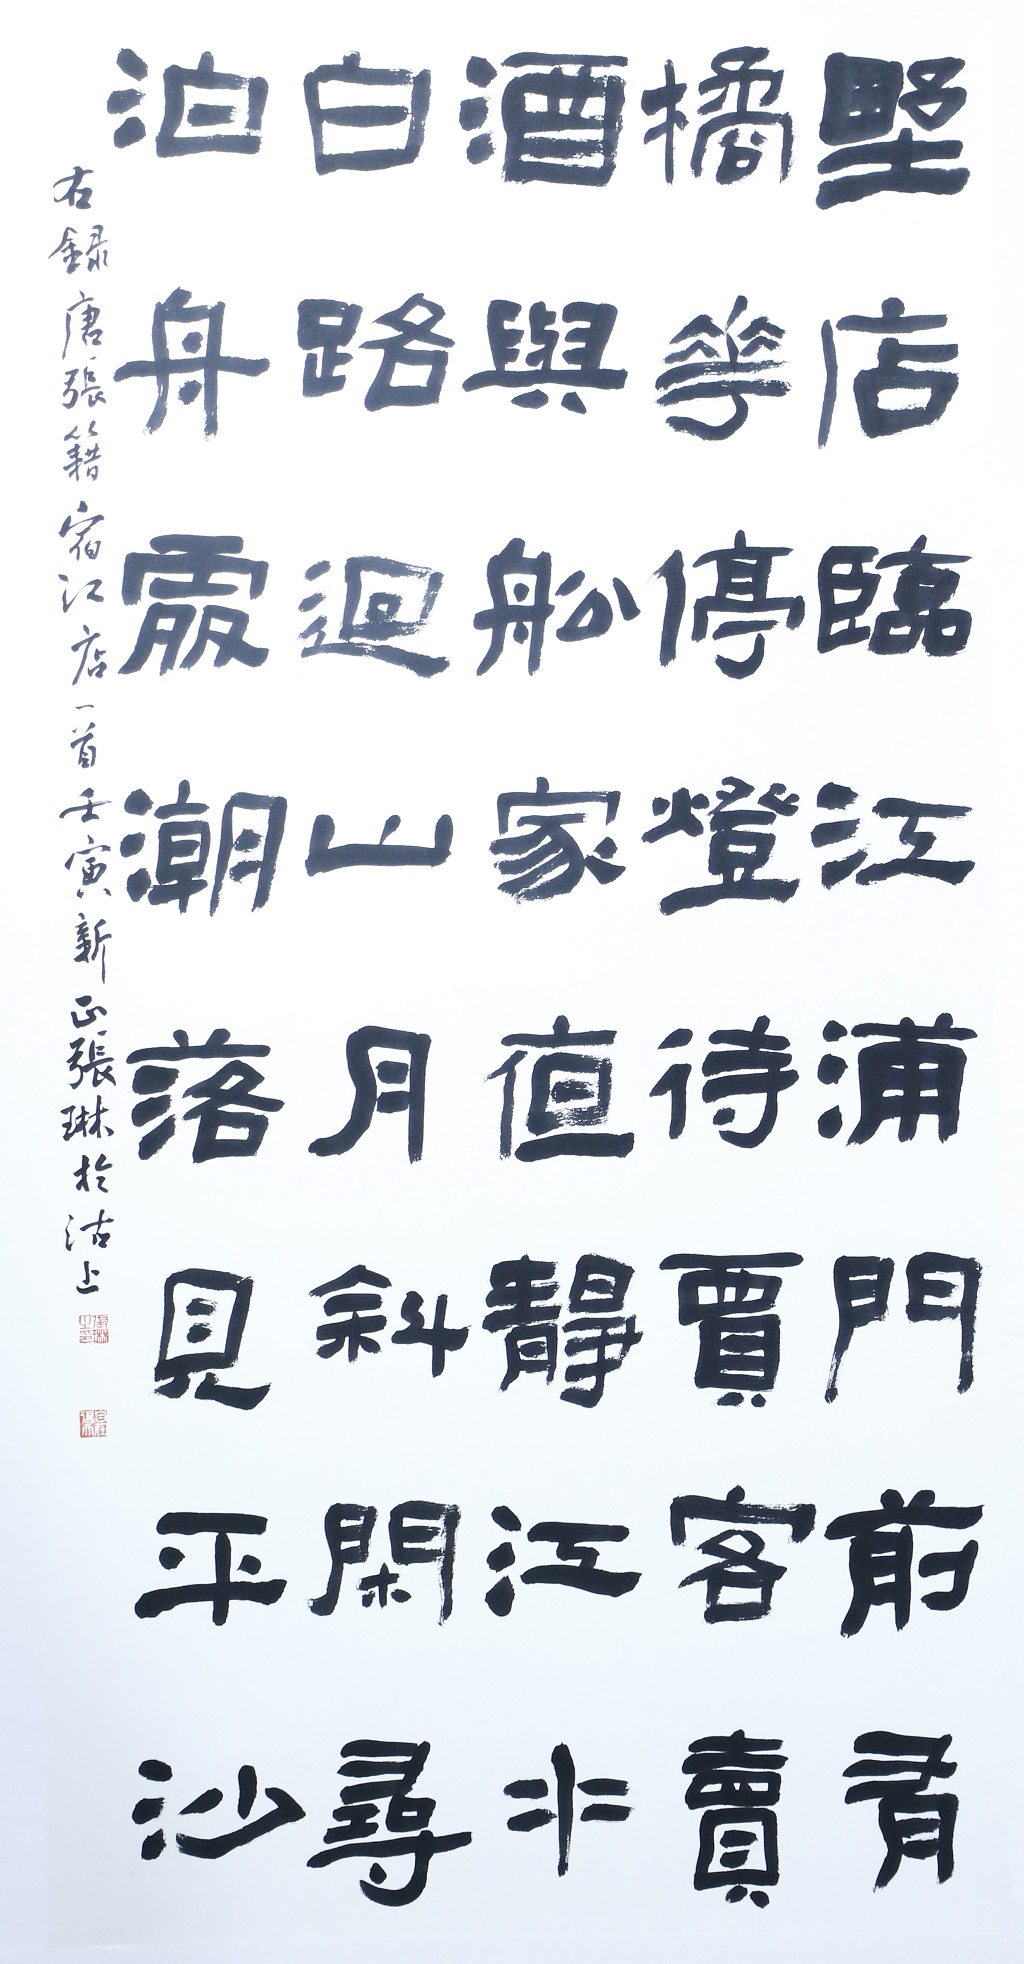 墅店臨江浦門前有
橘華停燈待賈客賣
酒與舩家值靜江水
白路迴山月斜閑尋
泊舟處潮落見平沙
右録唐張籍宿江店一首壬寅新正張琳於沽上